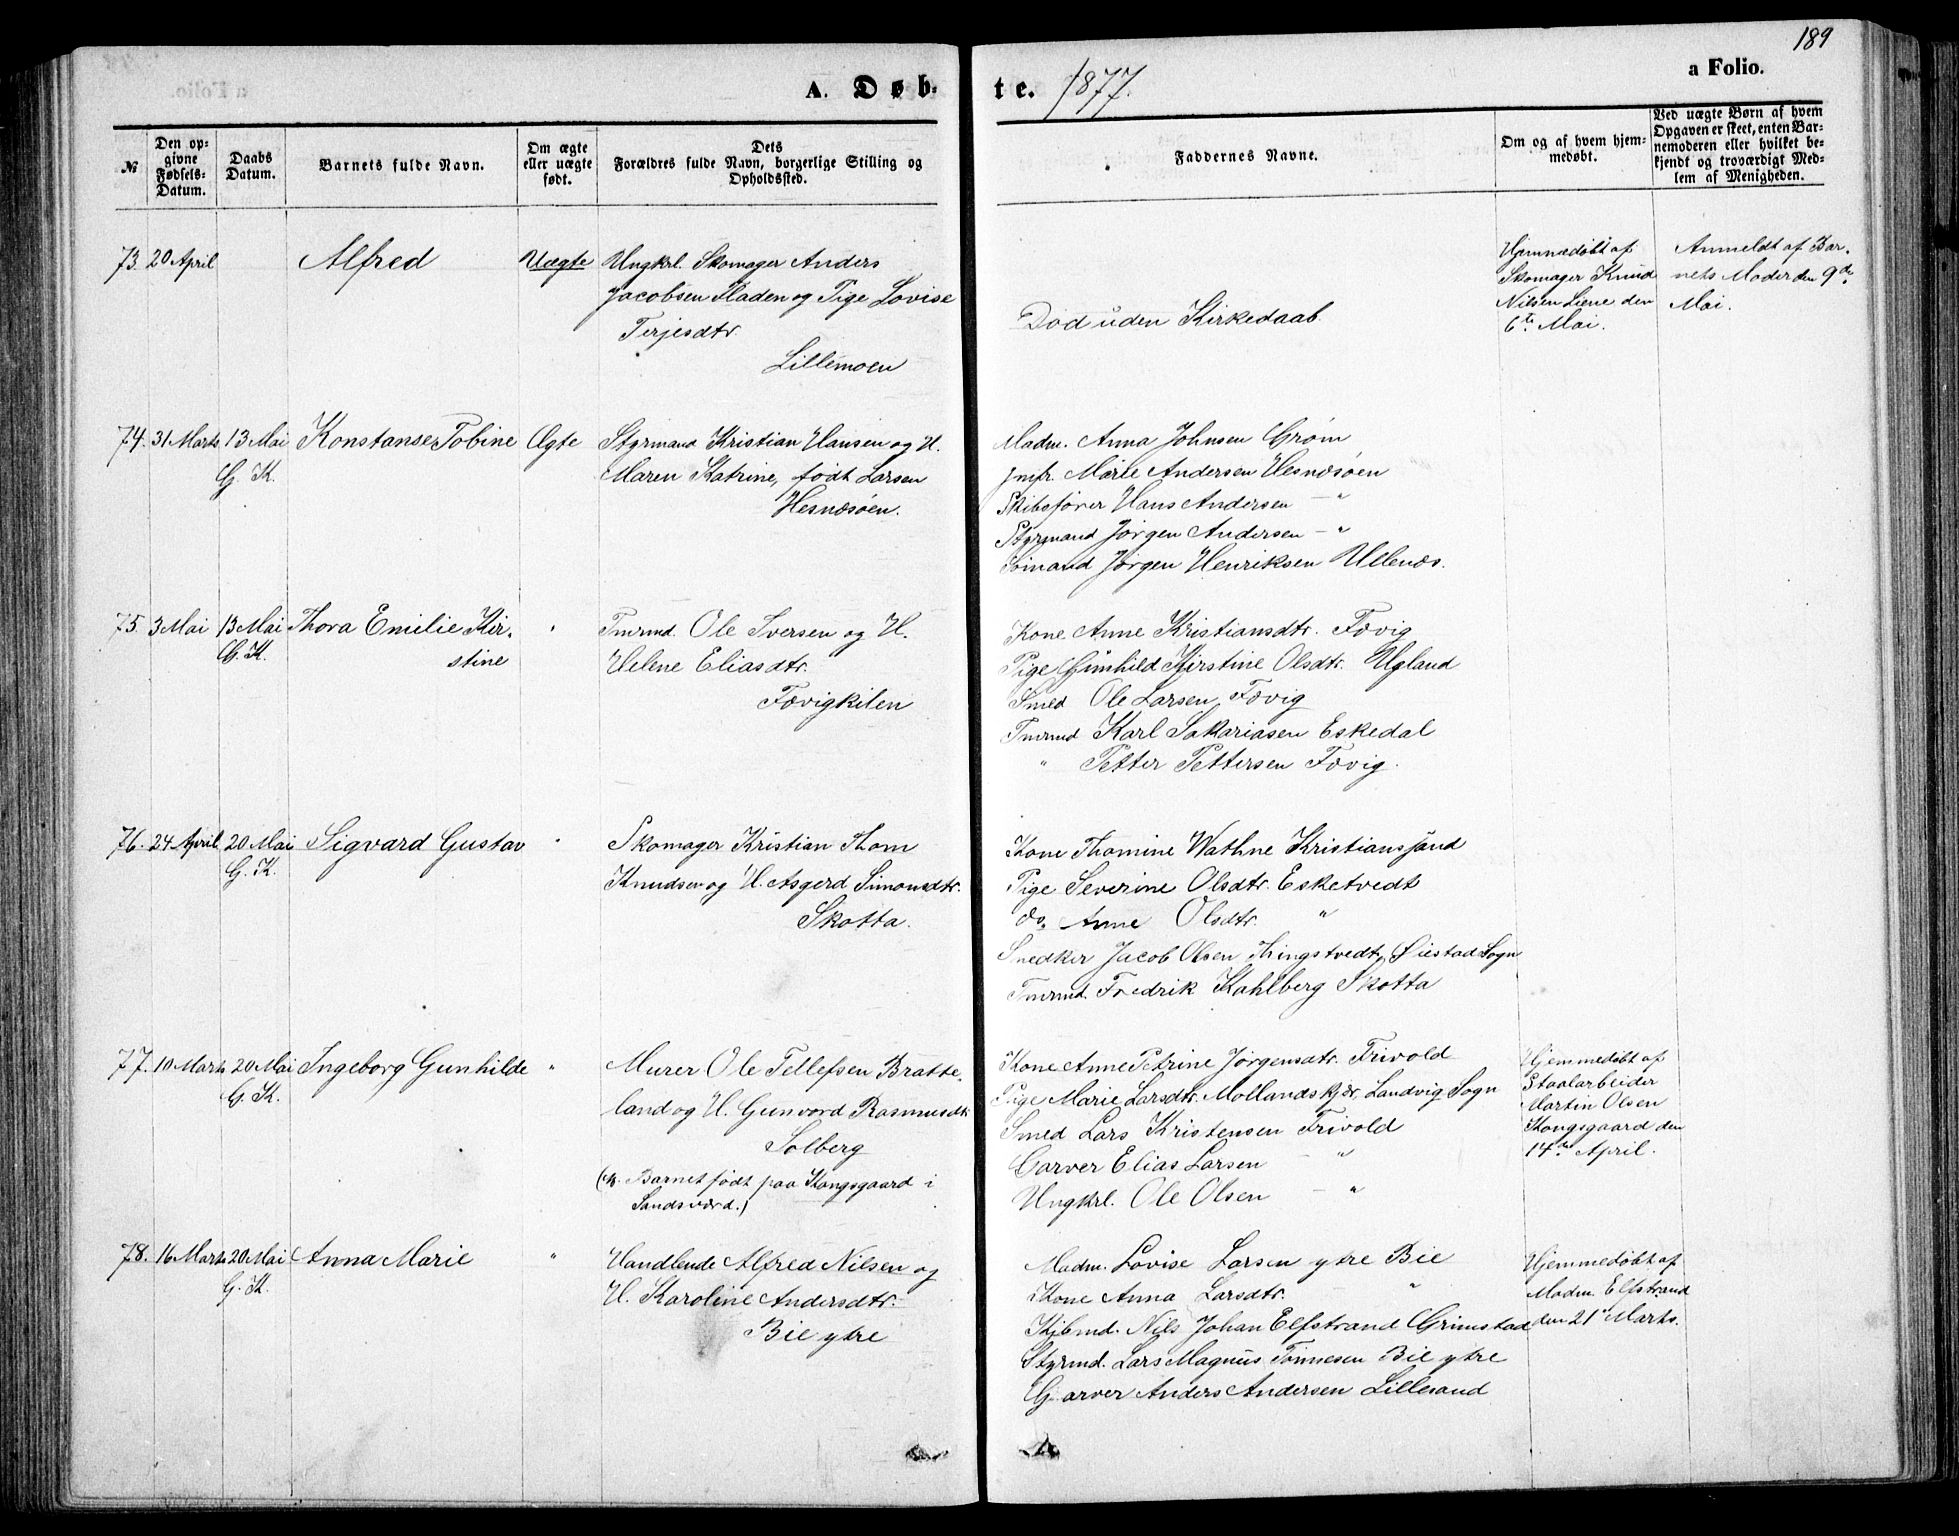 189
A. Døb-
te. 1877.
a Folio.
№
Den op-
givne
Fødsels-
Datum.
Daabs
Datum.
Barnets fulde Navn.
Om ægte
eller uægte
født.
Dets
Forældres fulde Navn, borgerlige Stilling og
Opholdssted.
Faddernes Navne.
Om og af hvem hjem-
medøbt.
Ved uægte Børn af hvem
Opgaven er skeet, enten Bar-
nemoderen eller hvilket be-
kjendt og troværdigt Med-
lem af Menigheden.
73. 20 April Alfred Uægte Ungkrl. Skomager Anders
Jacobsen Fladen og Pige Lovise
Terjesdtr.
Lillemoen
Død uden Kirkedaab.
Hjemmedøbt af
Skomager Knud
Nilsen Liene den
6te Mai.
Anmeldt af Bar-
nets Moder den 9de
Mai.
74. 31 Marts 13 Mai Konstanse Tobine Ægte Styrmand Kristian Hansen og H.
G. K. Maren Katrine, født Larsen
Hesnæsøen.
Madm. Anna Johnsen Grøm
Jmfr. Marie Andersen Hesnæsøen
Skibsfører Hans Andersen — "
Styrmand Jørgen Andersen — "
Sømand Jørgen Henriksen Ullenæs.
75. 3 Mai 13 Mai Thora Emilie Kir- " Tmrmd. Ole Iversen og H.
G. K. stine Helene Eliasdtr.
Fævigkilen
Kone Anne Kristiansdtr. Fævig
Pige Gunhild Kirstine Olsdtr. Ugland
Smed Ole Larsen Fævig
Tmrmd Karl Sakariasen Eskedal
" Petter Pettersen Fævig.
76. 24 April 20 Mai Sigvard Gustav " Skomager Kristian Thom
G. K. Knudsen og H. Asgerd Simonsdtr.
Skotta.
Kone Thomine Wathne Kristianssand
Pige Severine Olsdtr. Esketvedt
do. Anne Olsdtr. "
Snedker Jacob Olsen Thingstvedt, Øiestad Sogn
Tmrmd. Fredrik Kahlberg Skotta
77. 10 Marts 20 Mai Ingeborg Gunhilde " Murer Ole Tellefsen Bratte-
G. K. land og H. Gunvord Rasmusdtr
Solberg
Barnet født paa Kongsgaard i
Sandsværd.)
Kone Anne Petrine Jørgensdtr. Frivold
Pige Marie Larsdtr. Mollandskjær, Landvig Sogn
Smed Lars Kristensen Frivold
Garver Elias Larsen — "
Ungkrl. Ole Olsen — "
Hjemmedøbt af
Staalarbeider
Martin Olsen
Kongsgaard den
14de April.
78. 16 Marts 20 Mai Anna Marie " Handlende Alfred Nilsen og
G. K. H. Karoline Andersdtr.
Bie ytre
Madm. Lovise Larsen ytre Bie
Kone Anna Larsdtr. "
Kjbmd. Nils Johan Elfstrand Grimstad
Styrmd. Lars Magnus Tønnesen Bie ytre
Garver Anders Andersen Lillesand
Hjemmedøbt af
Madm. Elfstrand
den 21de Marts.